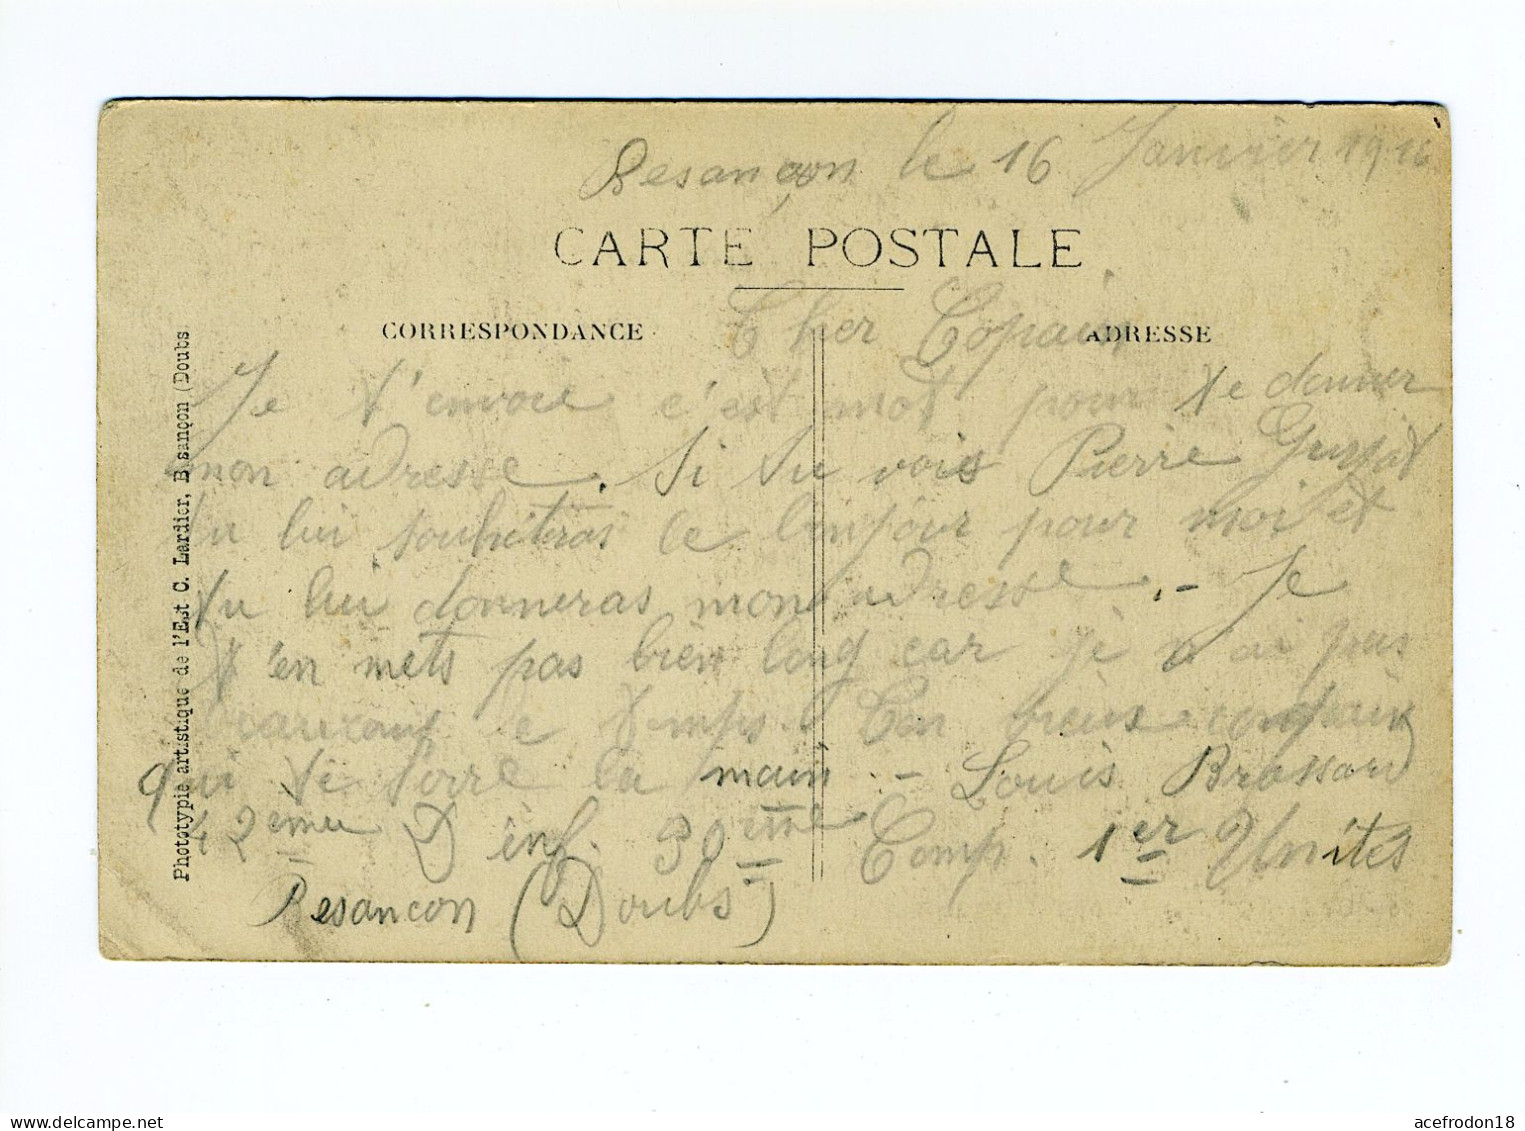 Besançon le 16 Janvier 1916
CARTE POSTALE
CORRESPONDANCE
ADRESSE
Cher Copain
Je t'envoie c'est mot pour te donner
mon adresse. Si tu vois Pierre
tu lui souhiteras le bonjour pour moi et
tu lui donneras mon adresse. - Je
t'en mets pas bien long car je n'ai pas
le temps. Ton vieux copain
qui te serre la main. - Louis Brossard
42ème D'inf. 30ème Comp. 1er Unités
Besancon (Doubs)
Phototypie artistique de l'Est C. Lardier, Besançon (Doubs
acefrodon18